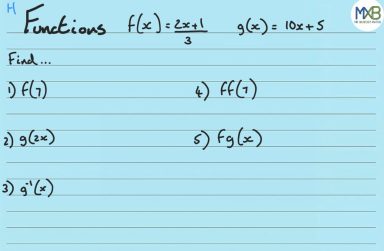 H
Functions f(x) = 2x+1/3 g(x) = 10x+5
MXB
Find...
1) f(7)
2) g(2x)
3) g⁻¹(x)
4) ff(7)
5) fg(x)